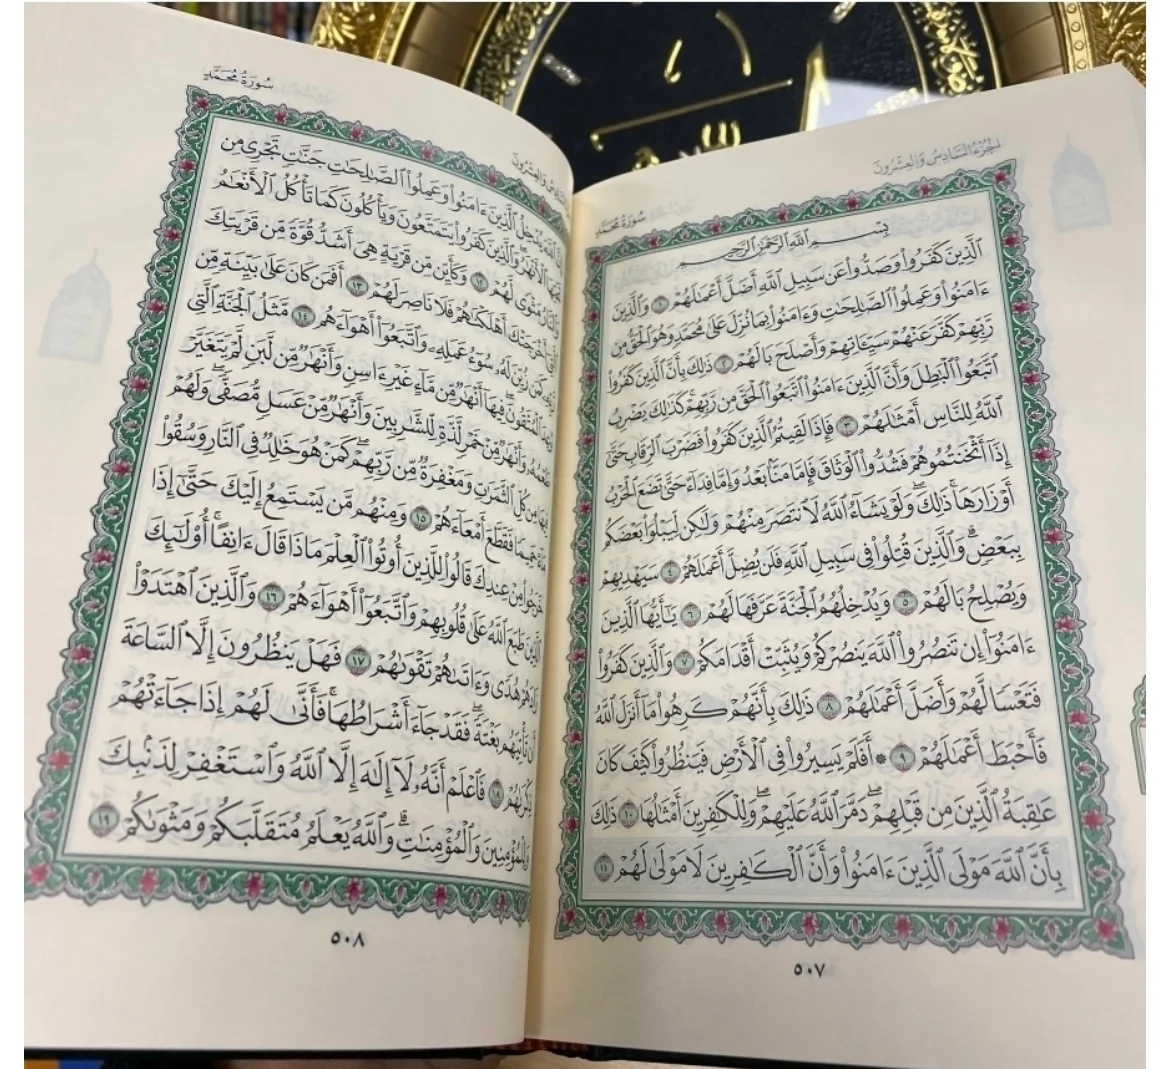 الجُزْءُ السَّادِسُ وَالعِشْرُونَ
سُورَةُ مُحَمَّدٍ
بِسْمِ ٱللَّهِ ٱلرَّحْمَٰنِ ٱلرَّحِيمِ
ٱلَّذِينَ كَفَرُوا۟ وَصَدُّوا۟ عَن سَبِيلِ ٱللَّهِ أَضَلَّ أَعْمَٰلَهُمْ ١ وَٱلَّذِينَ
ءَامَنُوا۟ وَعَمِلُوا۟ ٱلصَّٰلِحَٰتِ وَءَامَنُوا۟ بِمَا نُزِّلَ عَلَىٰ مُحَمَّدٍ وَهُوَ ٱلْحَقُّ مِن
رَّبِّهِمْ كَفَّرَ عَنْهُمْ سَيِّـَٔاتِهِمْ وَأَصْلَحَ بَالَهُمْ ٢ ذَٰلِكَ بِأَنَّ ٱلَّذِينَ كَفَرُوا۟
ٱتَّبَعُوا۟ ٱلْبَٰطِلَ وَأَنَّ ٱلَّذِينَ ءَامَنُوا۟ ٱتَّبَعُوا۟ ٱلْحَقَّ مِن رَّبِّهِمْ ۚ كَذَٰلِكَ يَضْرِبُ
ٱللَّهُ لِلنَّاسِ أَمْثَٰلَهُمْ ٣ فَإِذَا لَقِيتُمُ ٱلَّذِينَ كَفَرُوا۟ فَضَرْبَ ٱلرِّقَابِ حَتَّىٰٓ
إِذَآ أَثْخَنتُمُوهُمْ فَشُدُّوا۟ ٱلْوَثَاقَ فَإِمَّا مَنًّۢا بَعْدُ وَإِمَّا فِدَآءً حَتَّىٰ تَضَعَ ٱلْحَرْبُ
أَوْزَارَهَا ۚ ذَٰلِكَ ۖ وَلَوْ يَشَآءُ ٱللَّهُ لَٱنتَصَرَ مِنْهُمْ وَلَٰكِن لِّيَبْلُوَا۟ بَعْضَكُم
بِبَعْضٍ ۗ وَٱلَّذِينَ قُتِلُوا۟ فِى سَبِيلِ ٱللَّهِ فَلَن يُضِلَّ أَعْمَٰلَهُمْ ٤ سَيَهْدِيهِمْ
وَيُصْلِحُ بَالَهُمْ ٥ وَيُدْخِلُهُمُ ٱلْجَنَّةَ عَرَّفَهَا لَهُمْ ٦ يَٰٓأَيُّهَا ٱلَّذِينَ
ءَامَنُوٓا۟ إِن تَنصُرُوا۟ ٱللَّهَ يَنصُرْكُمْ وَيُثَبِّتْ أَقْدَامَكُمْ ٧ وَٱلَّذِينَ كَفَرُوا۟
فَتَعْسًا لَّهُمْ وَأَضَلَّ أَعْمَٰلَهُمْ ٨ ذَٰلِكَ بِأَنَّهُمْ كَرِهُوا۟ مَآ أَنزَلَ ٱللَّهُ
فَأَحْبَطَ أَعْمَٰلَهُمْ ٩ ۞ أَفَلَمْ يَسِيرُوا۟ فِى ٱلْأَرْضِ فَيَنظُرُوا۟ كَيْفَ كَانَ
عَٰقِبَةُ ٱلَّذِينَ مِن قَبْلِهِمْ ۚ دَمَّرَ ٱللَّهُ عَلَيْهِمْ ۖ وَلِلْكَٰفِرِينَ أَمْثَٰلُهَا ١٠ ذَٰلِكَ
بِأَنَّ ٱللَّهَ مَوْلَى ٱلَّذِينَ ءَامَنُوا۟ وَأَنَّ ٱلْكَٰفِرِينَ لَا مَوْلَىٰ لَهُمْ ١١
٥٠٧
وَالعِشْرُونَ
سُورَةُ مُحَمَّدٍ
إِنَّ ٱللَّهَ يُدْخِلُ ٱلَّذِينَ ءَامَنُوا۟ وَعَمِلُوا۟ ٱلصَّٰلِحَٰتِ جَنَّٰتٍ تَجْرِى مِن
تَحْتِهَا ٱلْأَنْهَٰرُ ۖ وَٱلَّذِينَ كَفَرُوا۟ يَتَمَتَّعُونَ وَيَأْكُلُونَ كَمَا تَأْكُلُ ٱلْأَنْعَٰمُ
وَٱلنَّارُ مَثْوًى لَّهُمْ ١٢ وَكَأَيِّن مِّن قَرْيَةٍ هِىَ أَشَدُّ قُوَّةً مِّن قَرْيَتِكَ
ٱلَّتِىٓ أَخْرَجَتْكَ أَهْلَكْنَٰهُمْ فَلَا نَاصِرَ لَهُمْ ١٣ أَفَمَن كَانَ عَلَىٰ بَيِّنَةٍ مِّن
رَّبِّهِۦ كَمَن زُيِّنَ لَهُۥ سُوٓءُ عَمَلِهِۦ وَٱتَّبَعُوٓا۟ أَهْوَآءَهُم ١٤ مَّثَلُ ٱلْجَنَّةِ ٱلَّتِى
وُعِدَ ٱلْمُتَّقُونَ ۖ فِيهَآ أَنْهَٰرٌ مِّن مَّآءٍ غَيْرِ ءَاسِنٍ وَأَنْهَٰرٌ مِّن لَّبَنٍ لَّمْ يَتَغَيَّرْ
طَعْمُهُۥ وَأَنْهَٰرٌ مِّنْ خَمْرٍ لَّذَّةٍ لِّلشَّٰرِبِينَ وَأَنْهَٰرٌ مِّنْ عَسَلٍ مُّصَفًّى ۖ وَلَهُمْ
فِيهَا مِن كُلِّ ٱلثَّمَرَٰتِ وَمَغْفِرَةٌ مِّن رَّبِّهِمْ ۖ كَمَنْ هُوَ خَٰلِدٌ فِى ٱلنَّارِ وَسُقُوا۟
مَآءً حَمِيمًا فَقَطَّعَ أَمْعَآءَهُمْ ١٥ وَمِنْهُم مَّن يَسْتَمِعُ إِلَيْكَ حَتَّىٰٓ إِذَا
خَرَجُوا۟ مِنْ عِندِكَ قَالُوا۟ لِلَّذِينَ أُوتُوا۟ ٱلْعِلْمَ مَاذَا قَالَ ءَانِفًا ۚ أُو۟لَٰٓئِكَ
ٱلَّذِينَ طَبَعَ ٱللَّهُ عَلَىٰ قُلُوبِهِمْ وَٱتَّبَعُوٓا۟ أَهْوَآءَهُمْ ١٦ وَٱلَّذِينَ ٱهْتَدَوْا۟
زَادَهُمْ هُدًى وَءَاتَىٰهُمْ تَقْوَىٰهُمْ ١٧ فَهَلْ يَنظُرُونَ إِلَّا ٱلسَّاعَةَ
أَن تَأْتِيَهُم بَغْتَةً ۖ فَقَدْ جَآءَ أَشْرَاطُهَا ۚ فَأَنَّىٰ لَهُمْ إِذَا جَآءَتْهُمْ
ذِكْرَىٰهُمْ ١٨ فَٱعْلَمْ أَنَّهُۥ لَآ إِلَٰهَ إِلَّا ٱللَّهُ وَٱسْتَغْفِرْ لِذَنۢبِكَ
وَلِلْمُؤْمِنِينَ وَٱلْمُؤْمِنَٰتِ ۗ وَٱللَّهُ يَعْلَمُ مُتَقَلَّبَكُمْ وَمَثْوَىٰكُمْ ١٩
٥٠٨